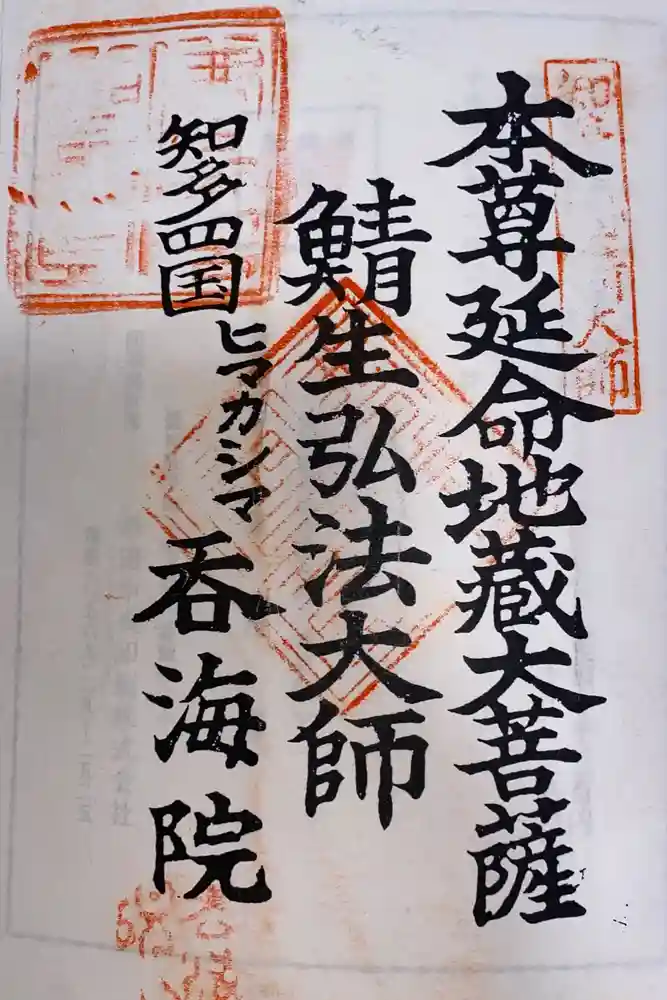 本尊延命地藏大菩薩
鯖生弘法大師
知多四国ヒマカシマ呑海院